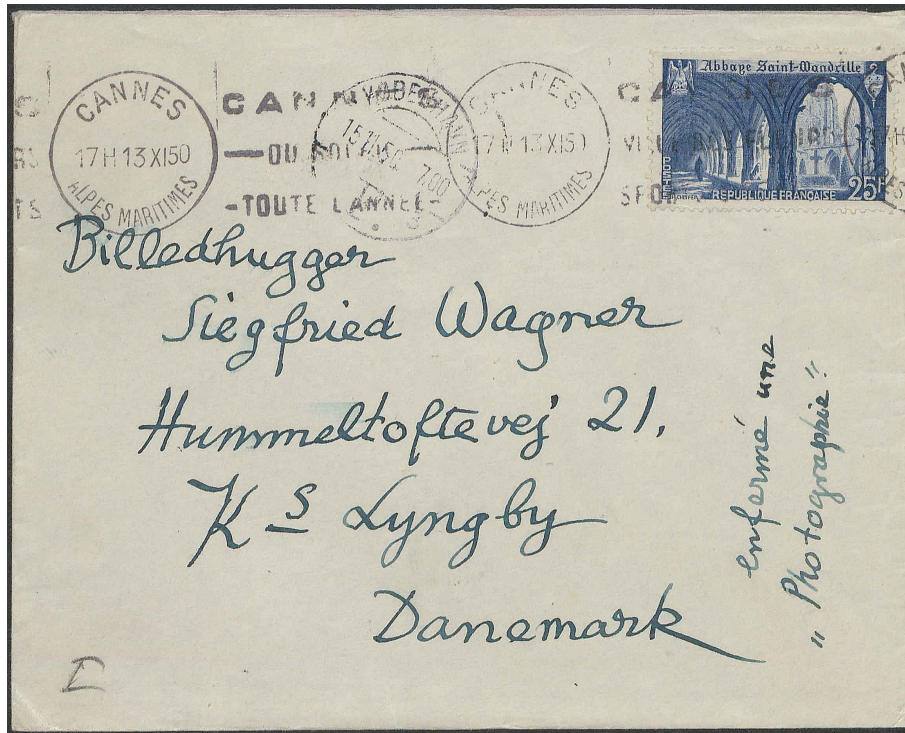 CANNES
17H 13 XI50
ALPES MARITIMES
CANNES
-TOUTE L'ANNEE-
15.11.50 7.00
CANNES
17H 13 XI50
ALPES MARITIMES
Abbaye Saint-Wandrille
POSTES
RÉPUBLIQUE FRANÇAISE
25F
Billedhugger
Siegfried Wagner
Hummeltoftevej 21.
Ks Lyngby
Danemark
enfermé une
"Photographie"
I